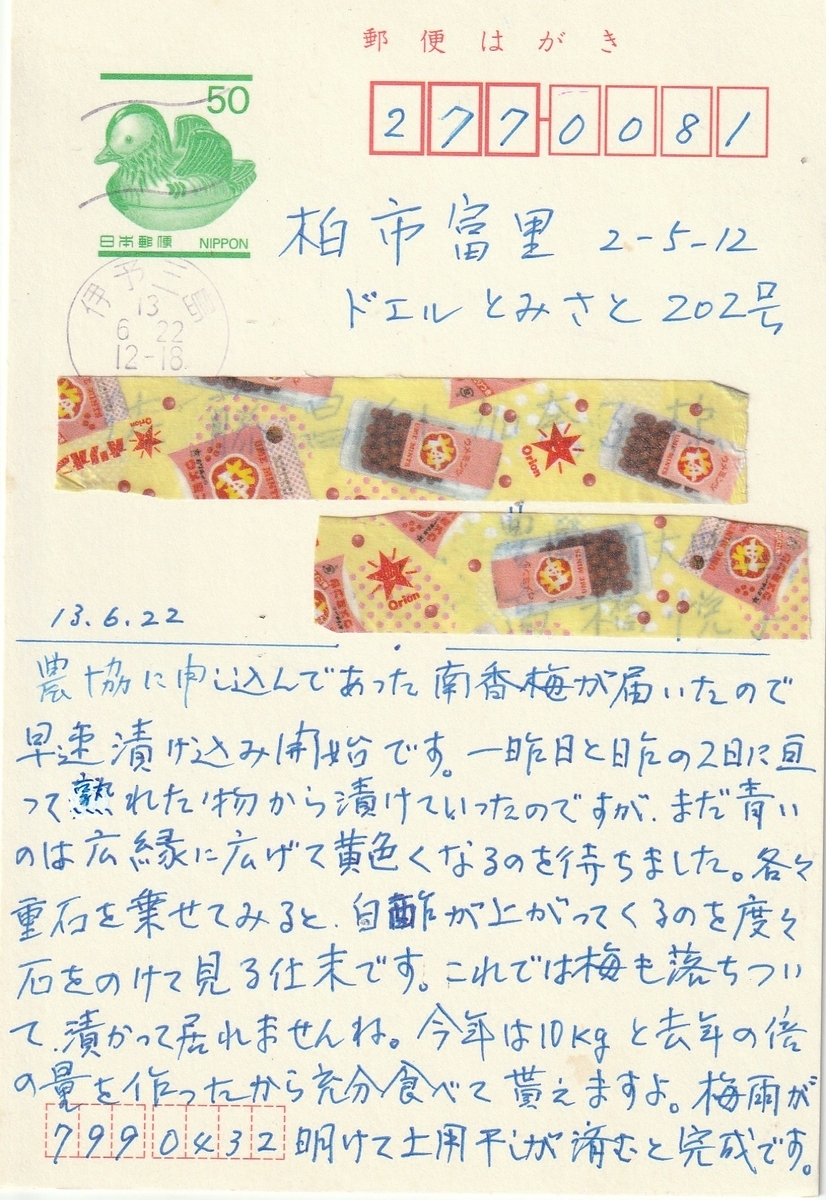 郵便はがき
50
日本郵便 NIPPON
277-0081
伊予三島
13
6 22
12-18
柏市富里 2-5-12
ドエルとみさと 202号
Orion
Orion
ウメミンツ
UME MINTS
Orion
UME MINTS
13.6.22
農協に申し込んであった南香梅が届いたので
早速漬け込み開始です。一昨日と昨日の2日に亘
って熟れた物から漬けていったのですが、まだ青い
のは広縁に広げて黄色くなるのを待ちました。各々
重石を乗せてみると、白酢が上がってくるのを度々
石をのけて見る仕末です。これでは梅も落ちつい
て、漬かって居れませんね。今年は10kgと去年の倍
の量を作ったから充分食べて貰えますよ。梅雨が
明けて土用干しが済むと完成です。
7990432